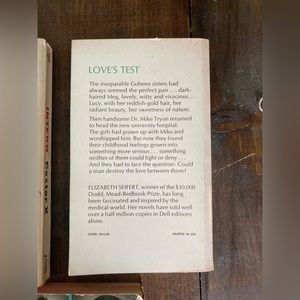 LOVE'S TEST
The inseparable Goheen sisters had
always seemed the perfect pair . . . dark-
haired Meg, lovely, witty and vivacious . . .
Lucy, with her reddish-gold hair, her
radiant beauty, her sweetness of nature.
Then handsome Dr. Mike Tryon returned
to head the new university hospital.
The girls had grown up with Mike, and
worshipped him. But now they found
their childhood feelings grown into
something more serious . . . something
neither of them could fight or deny . . .
And they had to face the question: Could
a man destroy the love between them?
ELIZABETH SEIFERT, winner of the $10,000
Dodd, Mead-Redbook Prize, has long
been fascinated and inspired by the
medical world. Her novels have sold well
over a half million copies in Dell editions
alone.
COVER: MILLER
PRINTED IN USA
INTERN
Doctor X